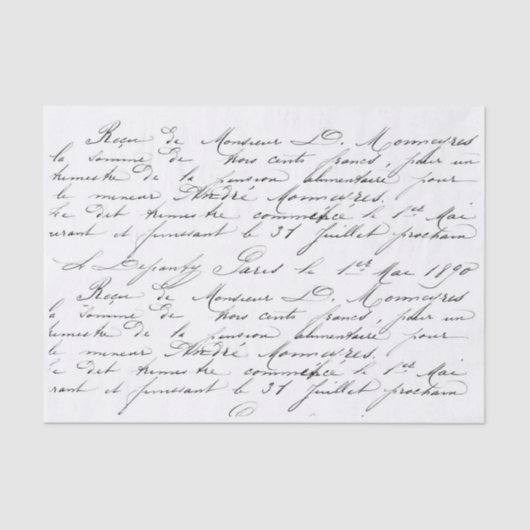 Reçu de Monsieur D. Monneyres
la somme de trois cents francs, pour un
trimestre de la pension alimentaire pour
le mineur André Monneyres.
Le dit trimestre commencé le 1er Mai
urant et finissant le 31 Juillet prochain
Paris le 1er Mai 1890
Reçu de Monsieur D. Monneyres
a somme de trois cents francs, pour un
imestre de la pension alimentaire pour
le mineur André Monneyres.
Le dit trimestre commencé le 1er Mai
rant et finissant le 31 Juillet prochain